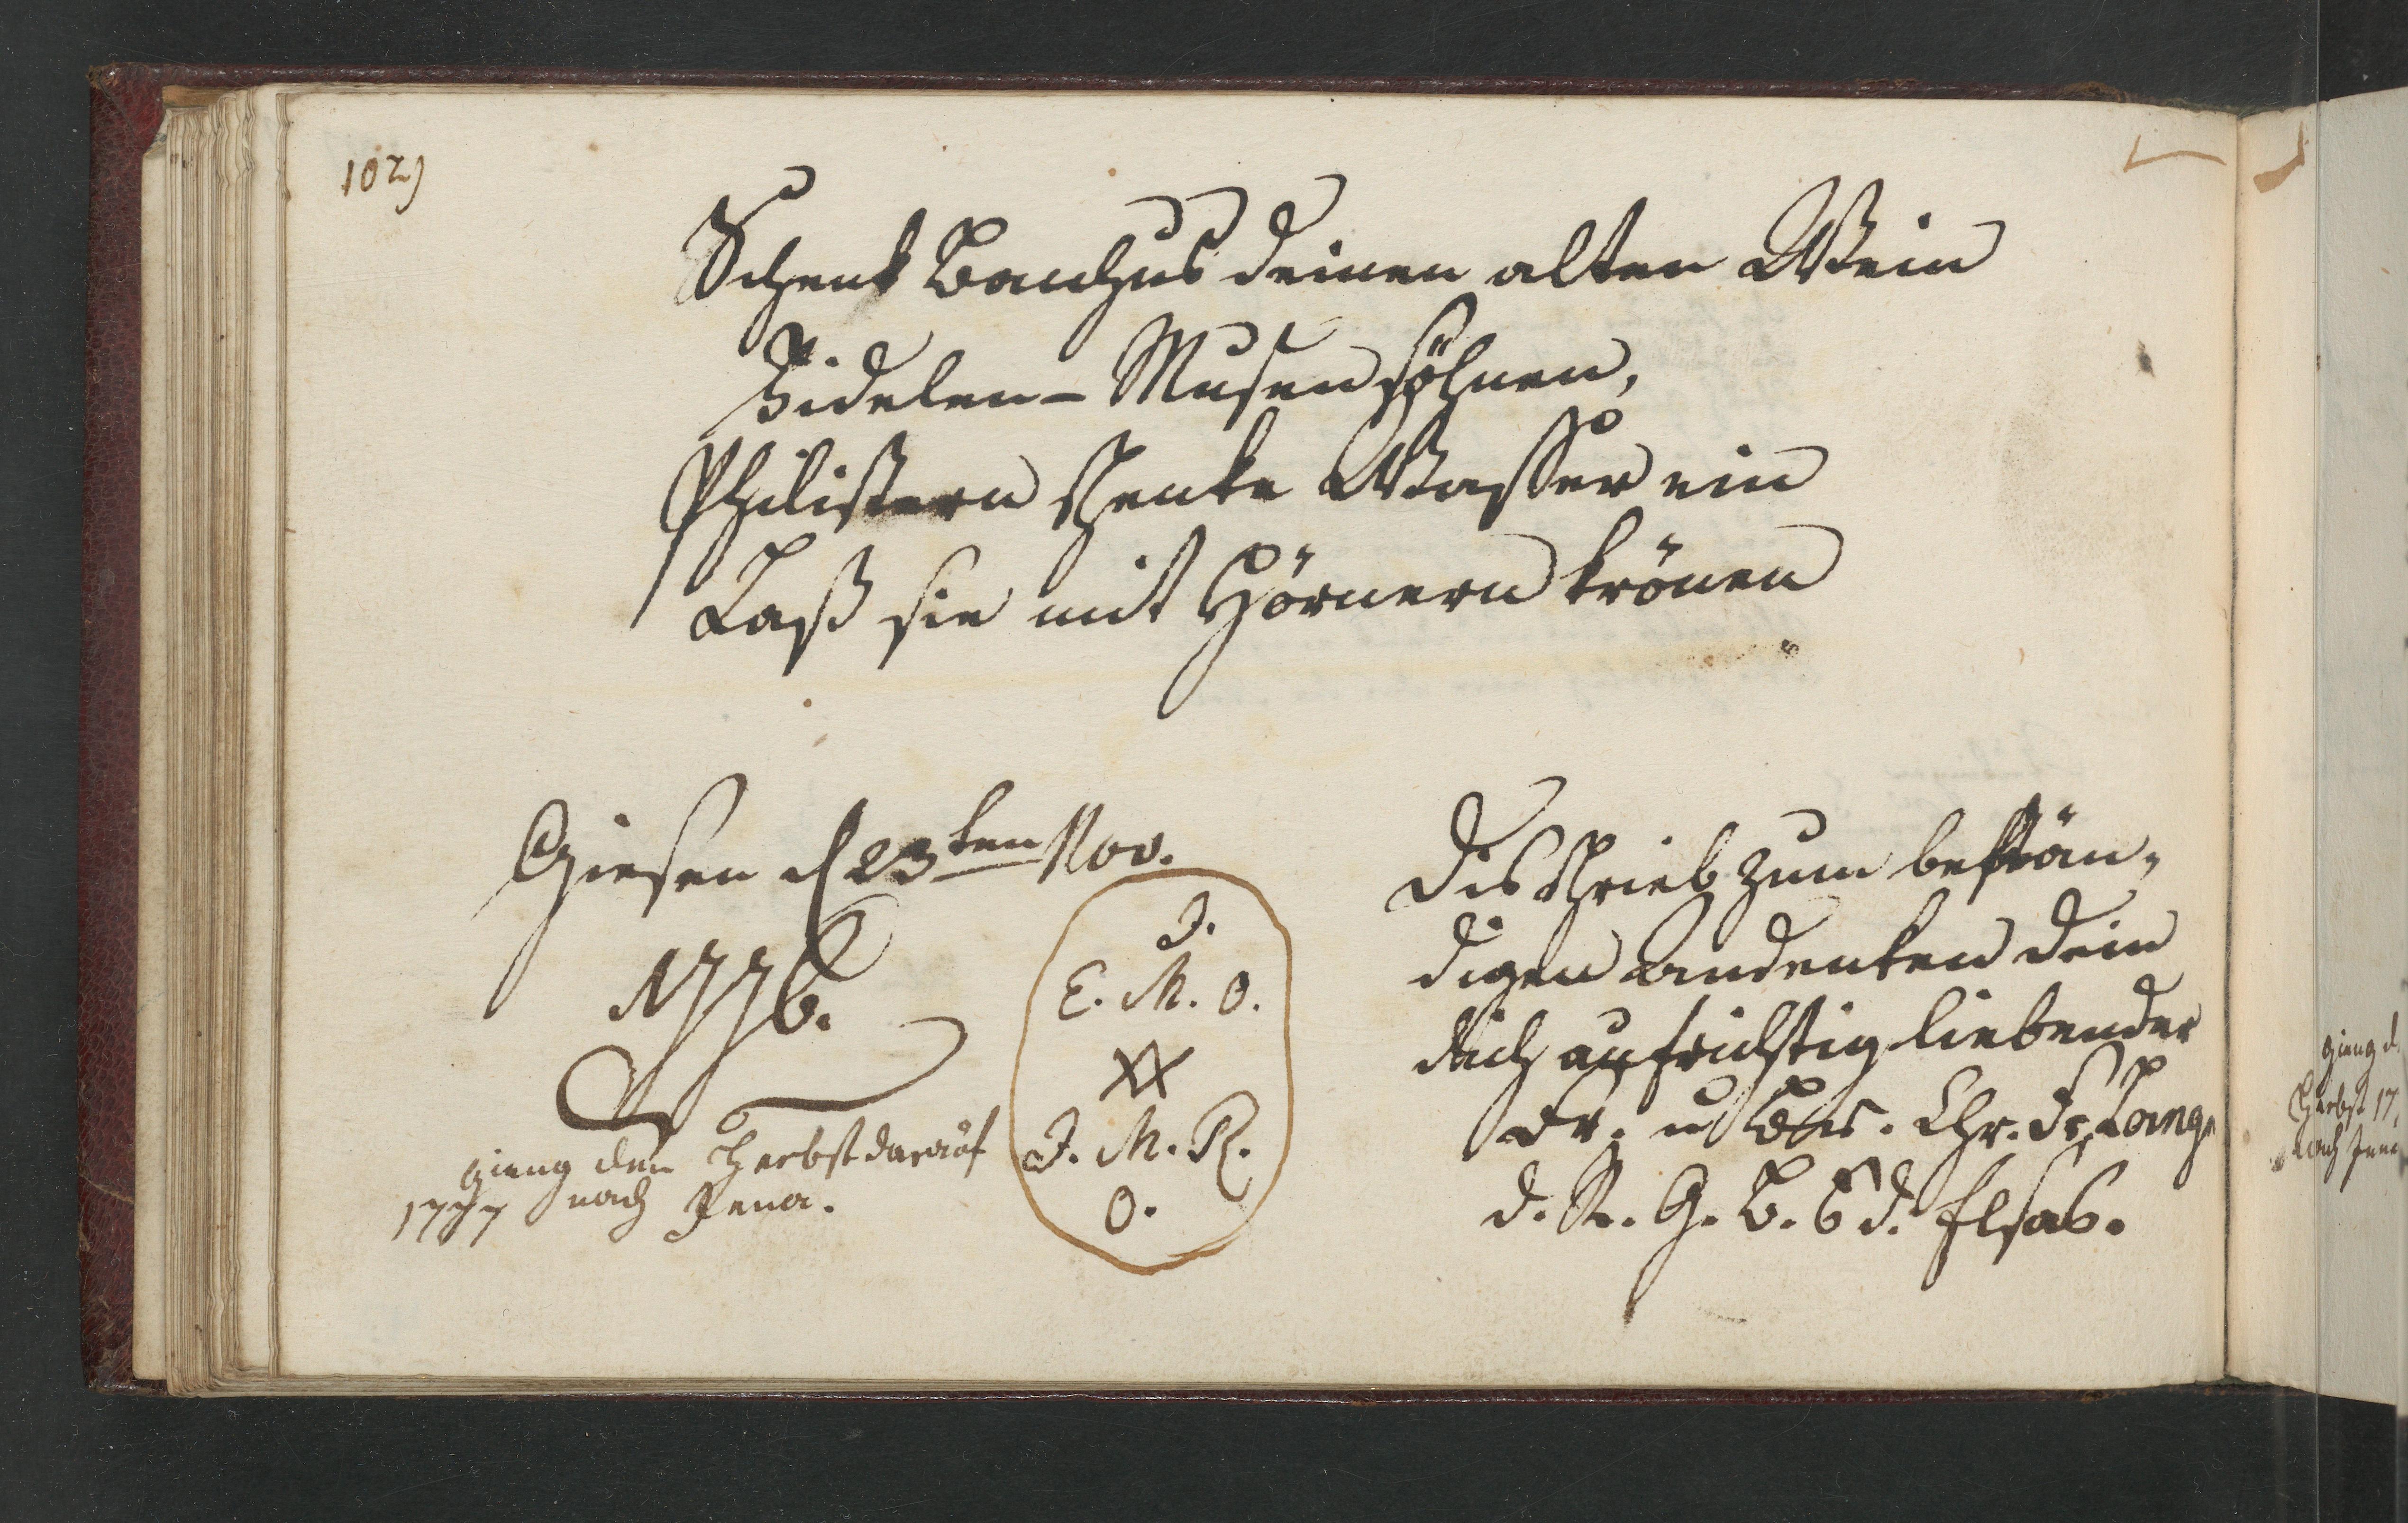 102)
Schenk Bacchus deinen alten Wein
Fidelen - Musensöhnen,
Philistern schenke Wasser ein
Laß sie mit Hörnern krönen
Giesen d 23ten Nov.
1776.
J.
E. M. O.
XX
J. M. R.
O.
gieng den Herbst darauf
1777 nach Jena.
Dis schrieb zum bestän„
digen Andenken dein
dich aufrichtig liebender
Fr. u. Chr. Fr. Lange
d. R. G. B. aus d. Elsas.
gieng d.
Herbst 17
nach Jena